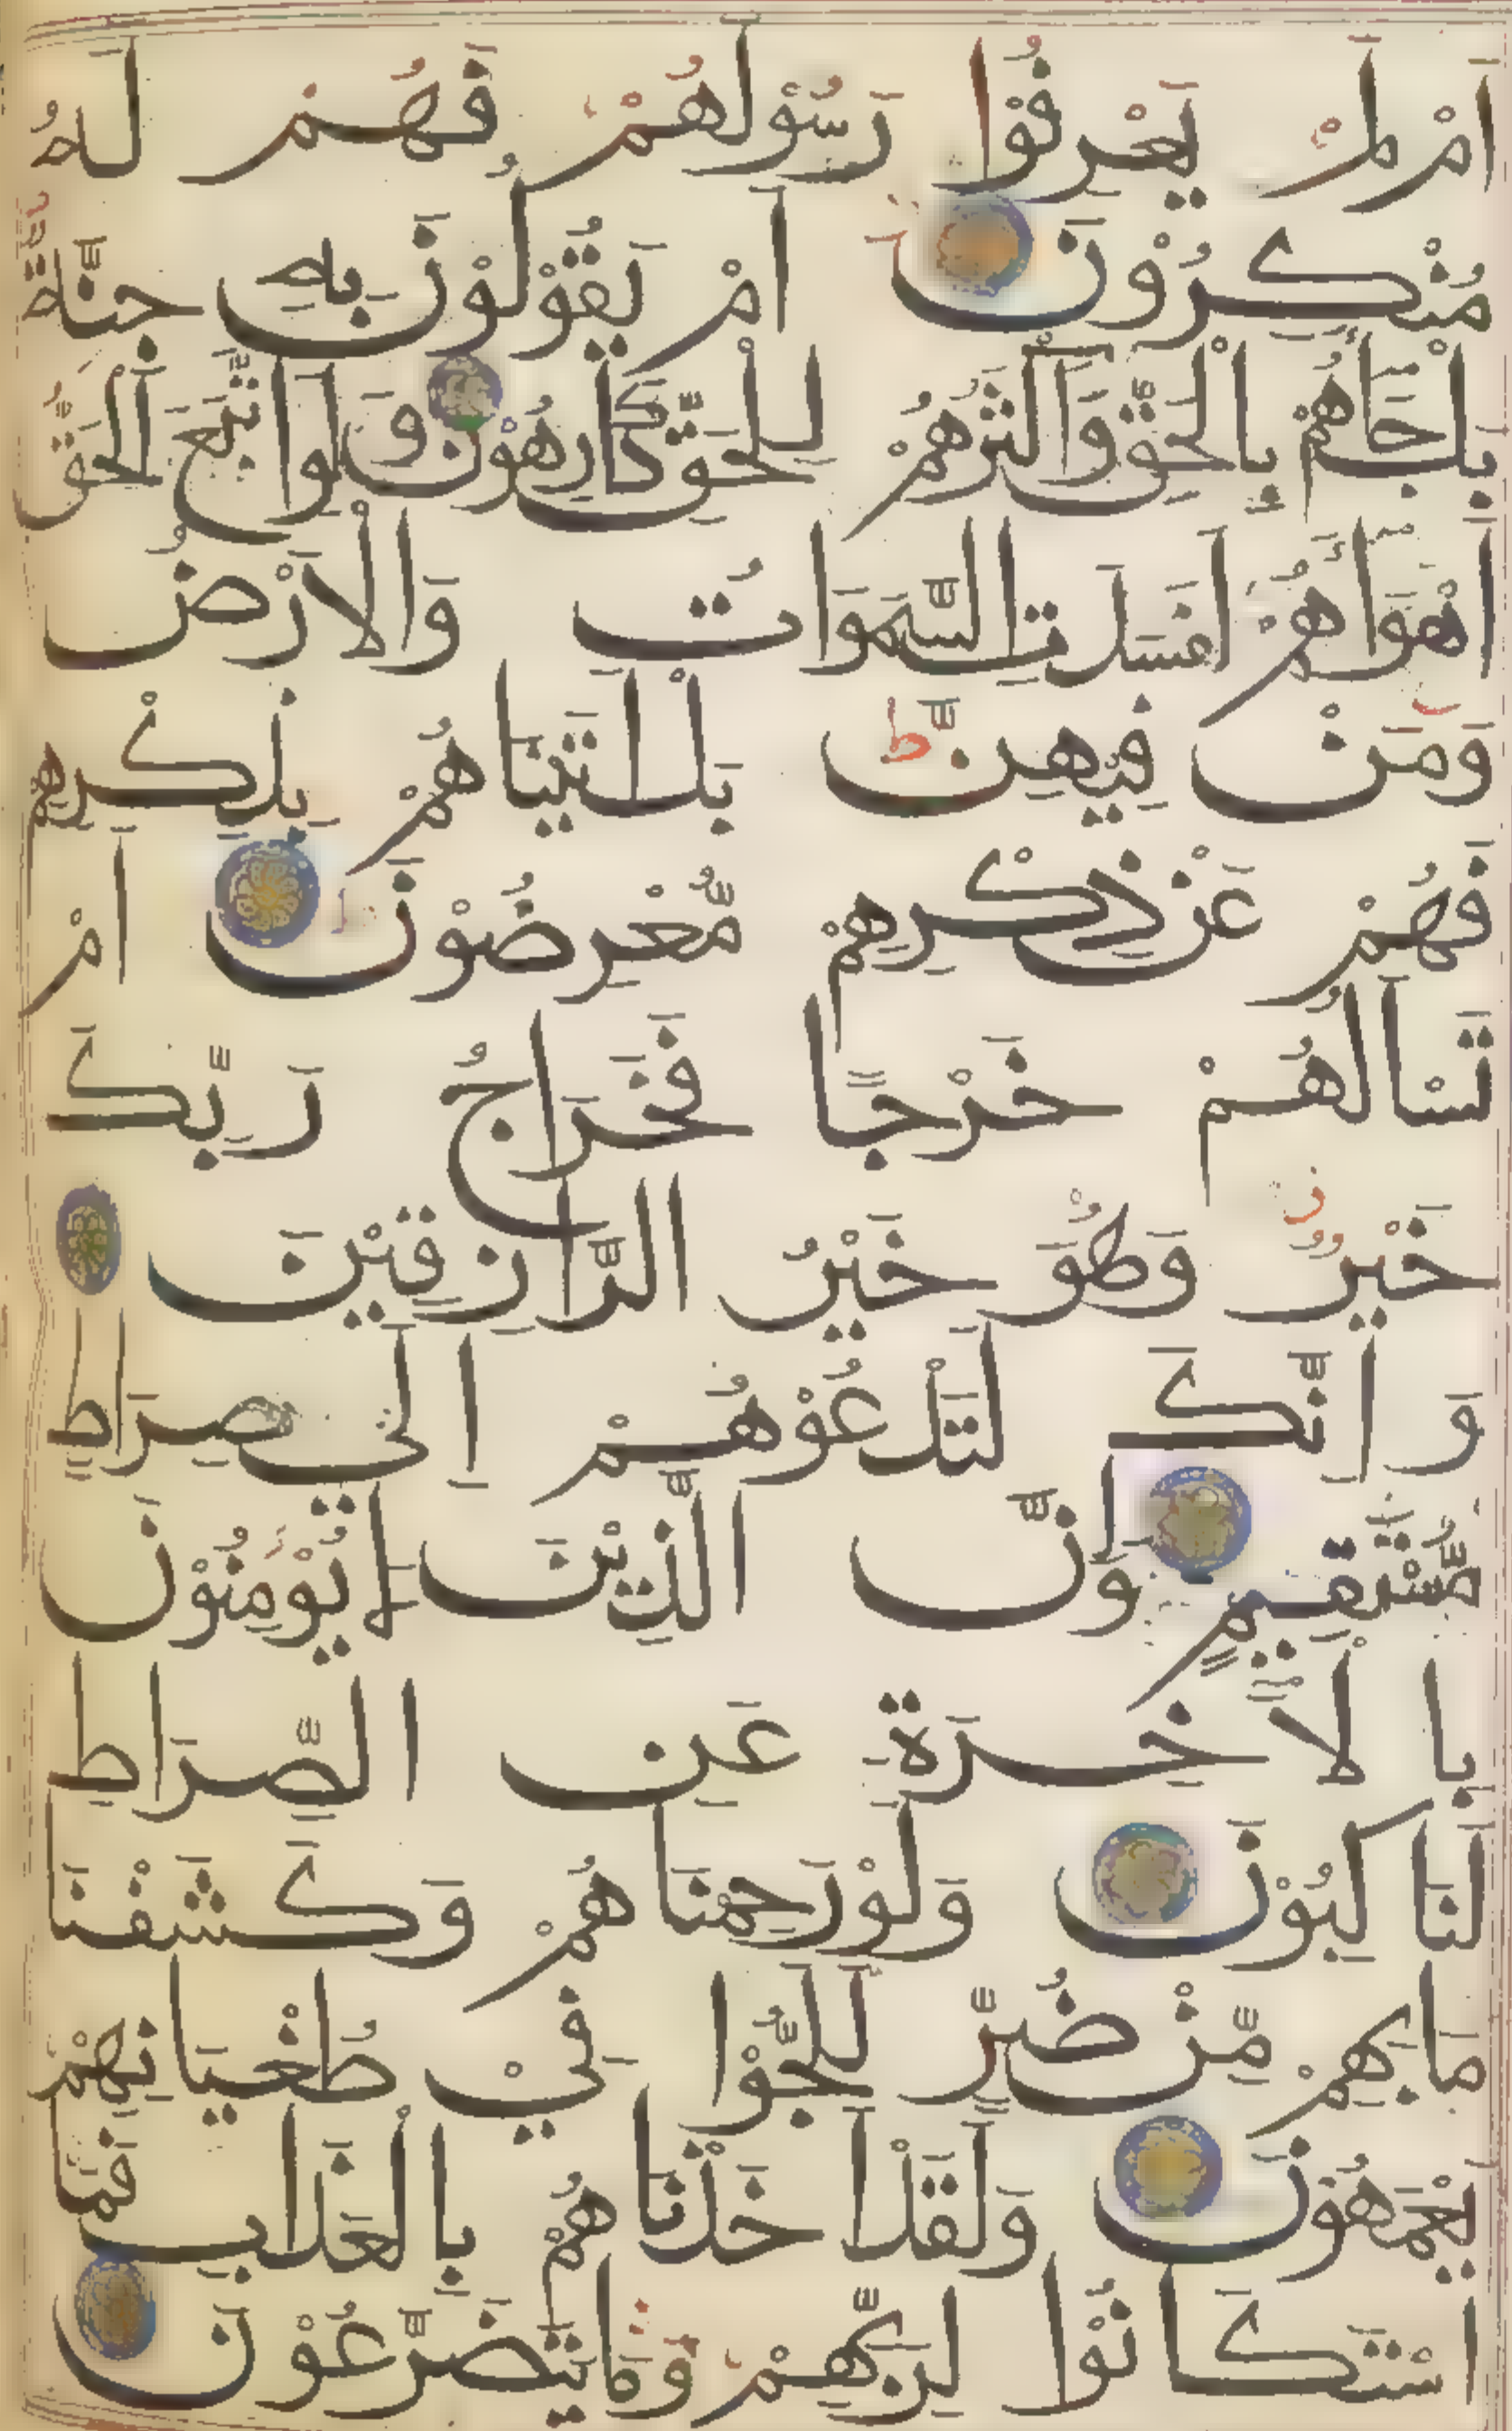 اَمْ لَمْ يَعْرِفُوا رَسُوْلَهُمْ فَهُمْ لَهُ
مُنْكِرُوْنَ اَمْ يَقُوْلُوْنَ بِهِ جِنَّةٌ
بَلْ جَاءَهُمْ بِالْحَقِّ وَاَكْثَرُهُمْ لِلْحَقِّ كَارِهُوْنَ وَلَوِاتَّبَعَ الْحَقُّ
اَهْوَاءَهُمْ لَفَسَدَتِ السَّمَوَاتُ وَالْاَرْضُ
وَمَنْ فِيْهِنَّ ط بَلْ اَتَيْنَاهُمْ بِذِكْرِهِمْ
فَهُمْ عَنْ ذِكْرِهِمْ مُّعْرِضُوْنَ اَمْ
تَسْاَلُهُمْ خَرْجًا فَخَرَاجُ رَبِّكَ
خَيْرٌ وَهُوَ خَيْرُ الرَّازِقِيْنَ
وَ اِنَّكَ لَتَدْعُوْهُمْ اِلَىٰ صِرَاطٍ
مُّسْتَقِيْمٍ وَاِنَّ الَّذِيْنَ لَا يُؤْمِنُوْنَ
بِا لْاٰخِرَةِ عَنِ الصِّرَاطِ
لَنَاكِبُوْنَ وَلَوْ رَحِمْنَاهُمْ وَكَشَفْنَا
مَا بِهِمْ مِّنْ ضُرٍّ لَّلَجُّوْا فِيْ طُغْيَانِهِمْ
يَعْمَهُوْنَ وَلَقَدْ اَخَذْنَاهُمْ بِالْعَذَابِ فَمَا
اسْتَكَانُوْا لِرَبِّهِمْ وَمَا يَتَضَرَّعُوْنَ